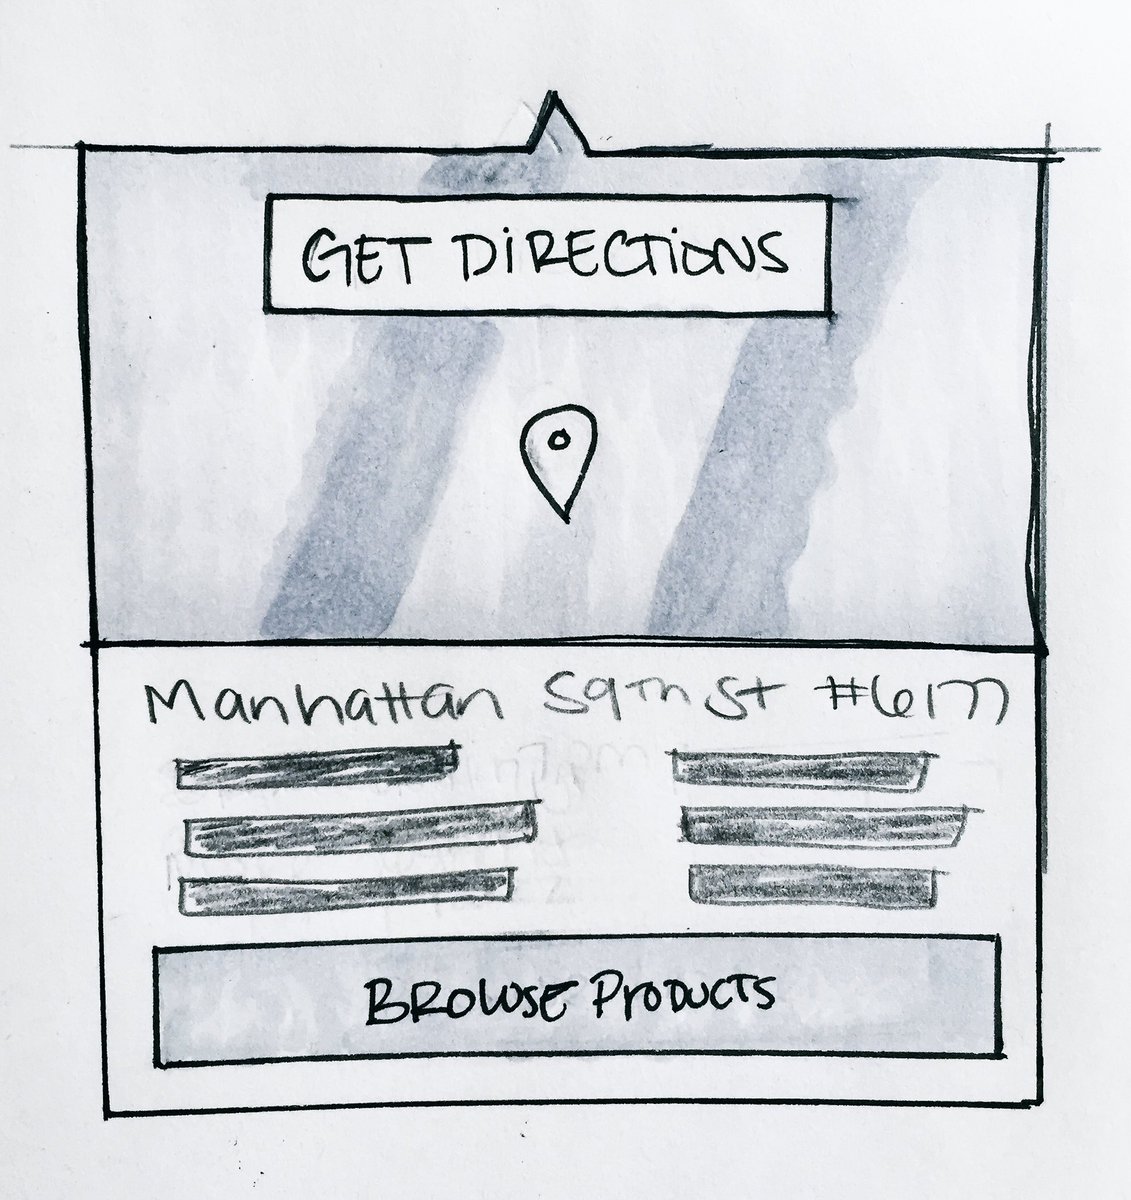 GET DIRECTIONS
Manhattan 59th St
BROWSE PRODUCTS